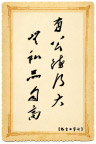 有公德乃大
无私品自高